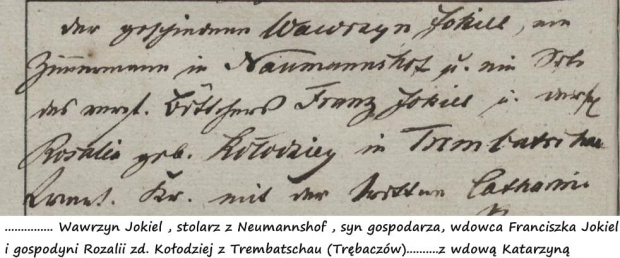 der geschiedene Wawrzyn Jokiel, ein
Zimmermann in Naumannshof u. ein Sohn
des verst. Böttchers Franz Jokiel u. der
Rosalia geb. Kołodziey in Trembatschau
Kr. mit der Wittwe Catharina
............... Wawrzyn Jokiel , stolarz z Neumannshof , syn gospodarza, wdowca Franciszka Jokiel
i gospodyni Rozalii zd. Kołodziej z Trembatschau (Trębaczów)..........z wdową Katarzyną